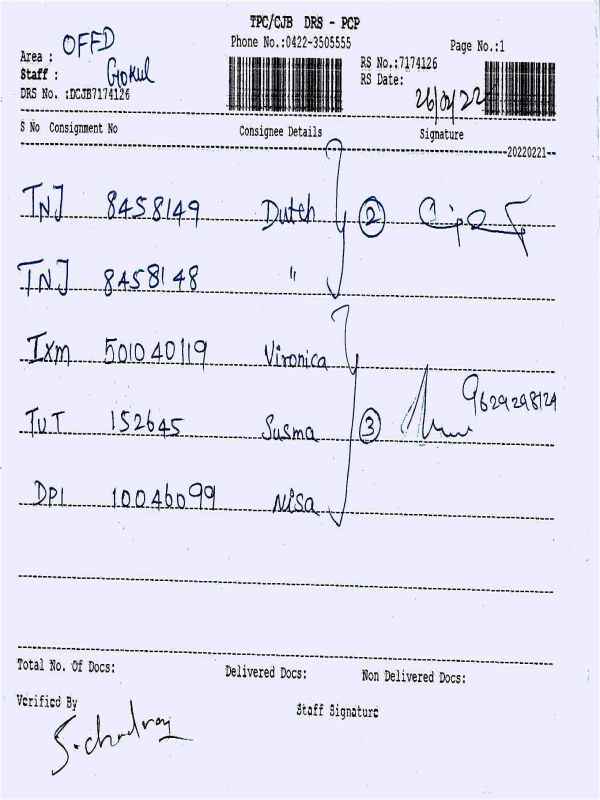 TPC/CJB DRS - PCP
Area : OFFD
Phone No.:0422-3505555
Page No.:1
Staff : Gokul
RS No.:7174126
RS Date:
DRS No. :DCJB7174126
S No Consignment No Consignee Details Signature
20220221
TNJ 8458149 Dutch 2
TNJ 8458148 "
IXM 501040119 Vironica
TUT 152645 Susma 3 9629298124
DPI 10046099 Nisa
Total No. Of Docs: Delivered Docs: Non Delivered Docs:
Verified By Staff Signature